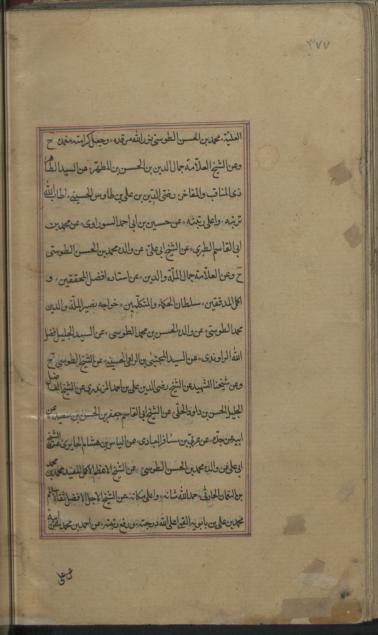 ٣٧٧
العلية محمد بن الحسن الطوسي نور الله مرقده وجعل كرامته معدن ح
وعن الشيخ العلامة جمال الدين بن الحسن بن المطهر عن السيد الطاهر
ذي المناقب والمفاخر رضي الدين بن علي بن طاوس الحسيني اطاب الله
تربته واعلى رتبته عن حسين بن ابي احمد السوراوي عن محمد بن
ابي القاسم الطبري عن الشيخ ابي علي عن والده محمد بن الحسن الطوسي
ح وعن العلامة جمال الملة والدين عن استاده افضل المحققين و
اكمل المدققين سلطان الحكماء والمتكلمين خواجه نصير الملة والدين
محمد الطوسي عن والده الحسن بن محمد الطوسي عن السيد الجليل فضل
الله الراوندي عن السيد المجتبى بن الداعي الحسيني عن الشيخ الطوسي ح
وعن شيخنا الشهيد عن الشيخ رضي الدين علي بن احمد المزيدي عن الشيخ
الجليل الحسن بن داود الحلي عن الشيخ ابي القاسم جعفر بن الحسن بن سعيد عن
ابيه عن جده عن عربي بن مسافر العبادي عن الياس بن هشام الحايري عن الشيخ
ابي علي عن والده محمد بن الحسن الطوسي عن الشيخ الاعظم الاكمل المفيد محمد بن محمد
بن النعمان الحارثي حمد الله شانه واعلى مكانه عن الشيخ الاجل الافضل
محمد بن علي بن بابويه القمي اعلى الله درجته ورفع رتبته عن احمد بن محمد